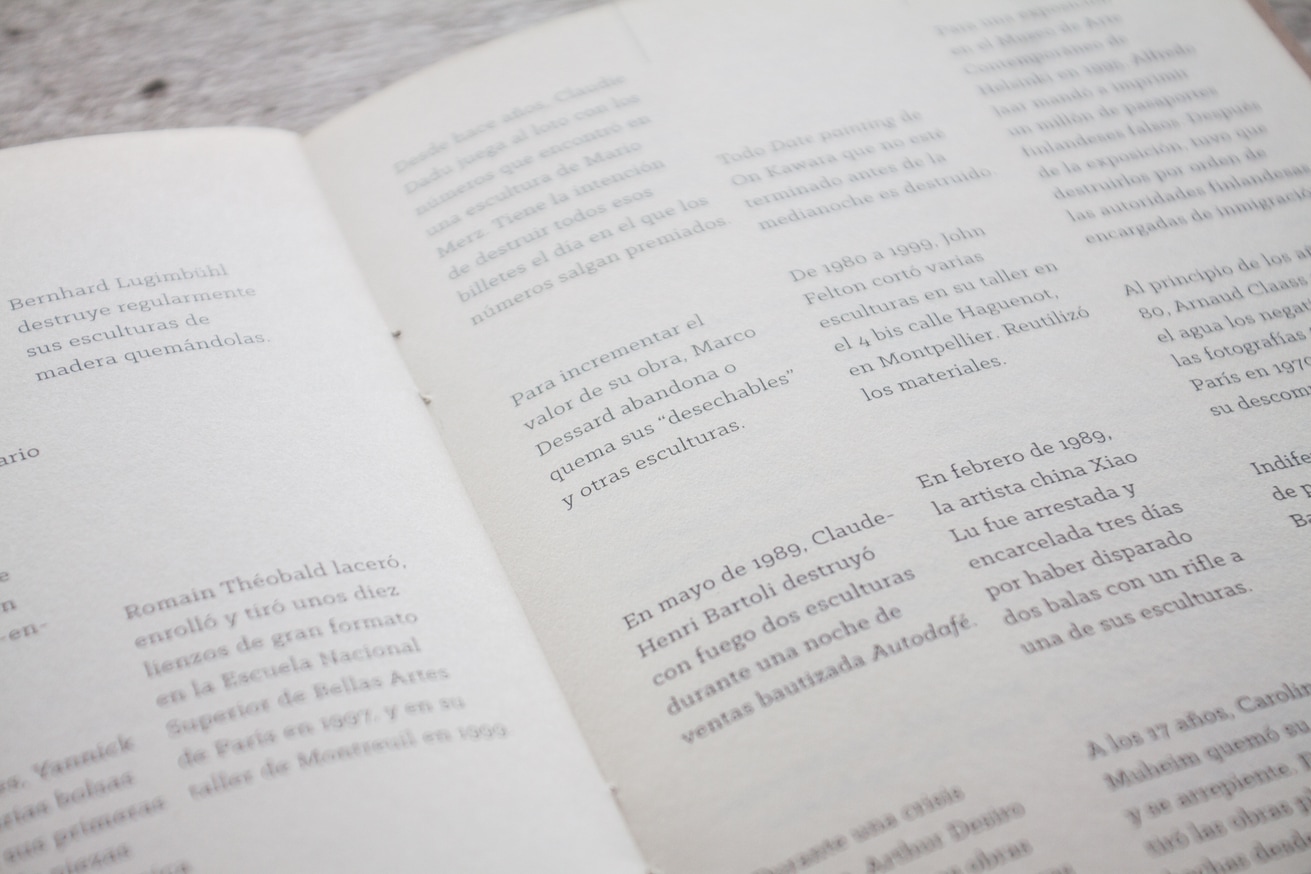 Bernhard Lugimbühl
destruye regularmente
sus esculturas de
madera quemándolas.
ario
e
n
-en-
Romain Théobald laceró,
enrolló y tiró unos diez
lienzos de gran formato
en la Escuela Nacional
Superior de Bellas Artes
de París en 1997, y en su
taller de Montreuil en 1999.
Yannick
bolsas
que primeras
piezas
Desde hace años, Claudio
Dadu juega al loto con los
números que encontró en
una escultura de Mario
Merz. Tiene la intención
de destruir todos esos
billetes el día en el que los
números salgan premiados.
Para incrementar el
valor de su obra, Marco
Dessard abandona o
quema sus “desechables”
y otras esculturas.
En mayo de 1989, Claude-
Henri Bartoli destruyó
con fuego dos esculturas
durante una noche de
ventas bautizada Autodafé.
Durante una crisis
Arthur Desiro
obras
Todo Date painting de
On Kawara que no esté
terminado antes de la
medianoche es destruido.
De 1980 a 1999, John
Felton cortó varias
esculturas en su taller en
el 4 bis calle Haguenot,
en Montpellier. Reutilizó
los materiales.
En febrero de 1989,
la artista china Xiao
Lu fue arrestada y
encarcelada tres días
por haber disparado
dos balas con un rifle a
una de sus esculturas.
A los 17 años, Carolin
Muheim quemó su
y se arrepiente.
tiró las obras
desde
Para una exposición
en el Museo de Arte
Contemporáneo de
Helsinki en 1995, Alfredo
Jaar mandó a imprimir
un millón de pasaportes
finlandeses falsos. Después
de la exposición, tuvo que
destruirlos por orden de
las autoridades finlandesas
encargadas de inmigració
Al principio de los a
80, Arnaud Claass
el agua los negat
las fotografías
París en 1970
su descom
Indife
de p
Ba